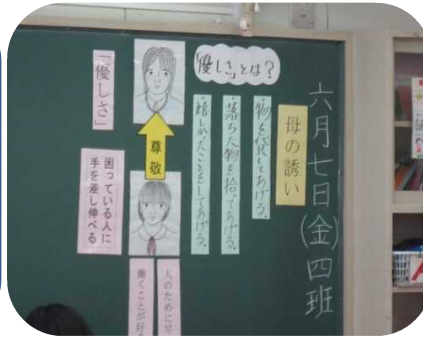 六月七日(金)四班
母の誘い
「優しさ」とは?
・物を貸してあげる。
・落ちた物を拾ってあげる。
・嬉しかったことをしてあげる。
尊敬
「優しさ」
困っている人に
手を差し伸べる
人のために
働くことが好